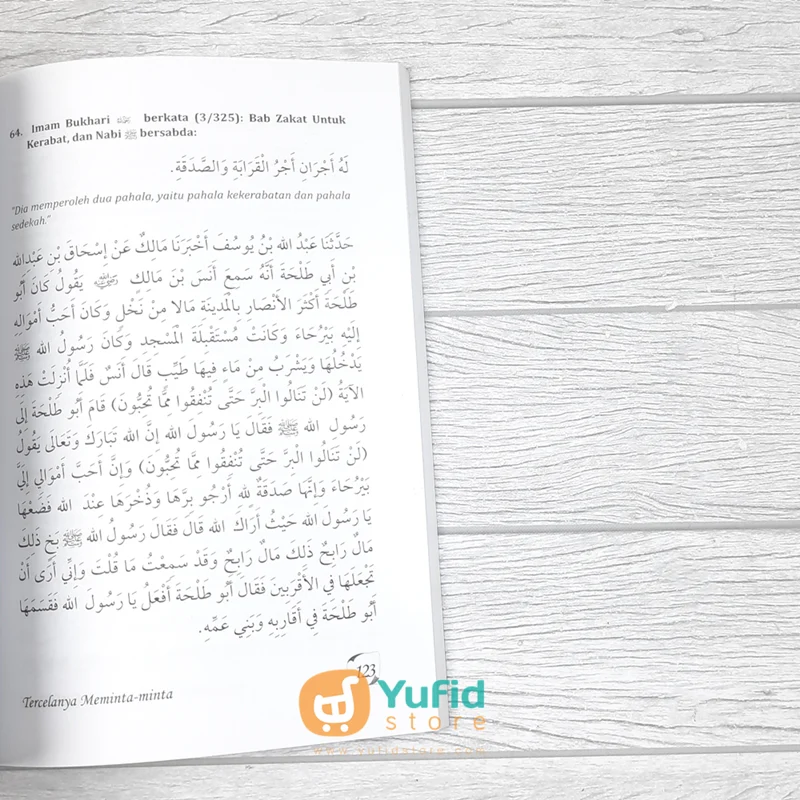 64. Imam Bukhari berkata (3/325): Bab Zakat Untuk
Kerabat, dan Nabi ﷺ bersabda:
لَهُ أَجْرَانِ أَجْرُ الْقَرَابَةِ وَالصَّدَقَةِ.
"Dia memperoleh dua pahala, yaitu pahala kekerabatan dan pahala
sedekah."
حَدَّثَنَا عَبْدُ الله بْنُ يُوسُفَ أَخْبَرَنَا مَالِكٌ عَنْ إِسْحَاقَ بْنِ عَبْدِالله
بْنِ أَبِي طَلْحَةَ أَنَّهُ سَمِعَ أَنَسَ بْنَ مَالِكٍ يَقُولُ كَانَ أَبُو
طَلْحَةَ أَكْثَرَ الأَنْصَارِ بِالْمَدِينَةِ مَالًا مِنْ نَخْلٍ وَكَانَ أَحَبُّ أَمْوَالِهِ
إِلَيْهِ بَيْرُحَاءَ وَكَانَتْ مُسْتَقْبِلَةَ الْمَسْجِدِ وَكَانَ رَسُولُ الله ﷺ
يَدْخُلُهَا وَيَشْرَبُ مِنْ مَاءٍ فِيهَا طَيِّبٍ قَالَ أَنَسٌ فَلَمَّا أُنْزِلَتْ هَذِهِ
الآيَةُ (لَنْ تَنَالُوا الْبِرَّ حَتَّى تُنْفِقُوا مِمَّا تُحِبُّونَ) قَامَ أَبُو طَلْحَةَ إِلَى
رَسُولِ الله ﷺ فَقَالَ يَا رَسُولَ الله إِنَّ الله تَبَارَكَ وَتَعَالَى يَقُولُ
(لَنْ تَنَالُوا الْبِرَّ حَتَّى تُنْفِقُوا مِمَّا تُحِبُّونَ) وَإِنَّ أَحَبَّ أَمْوَالِي إِلَيَّ
بَيْرُحَاءَ وَإِنَّهَا صَدَقَةٌ لِلهِ أَرْجُو بِرَّهَا وَذُخْرَهَا عِنْدَ الله فَضَعْهَا
يَا رَسُولَ الله حَيْثُ أَرَاكَ الله قَالَ فَقَالَ رَسُولُ الله ﷺ بَخٍ ذَلِكَ
مَالٌ رَابِحٌ ذَلِكَ مَالٌ رَابِحٌ وَقَدْ سَمِعْتُ مَا قُلْتَ وَإِنِّي أَرَى أَنْ
تَجْعَلَهَا فِي الأَقْرَبِينَ فَقَالَ أَبُو طَلْحَةَ أَفْعَلُ يَا رَسُولَ الله فَقَسَمَهَا
أَبُو طَلْحَةَ فِي أَقَارِبِهِ وَبَنِي عَمِّهِ.
123
Tercelanya Meminta-minta
Yufid
store
www.yufidstore.com